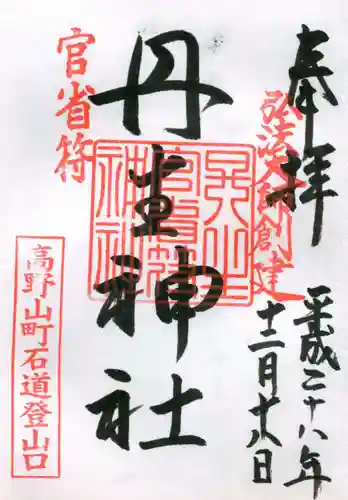 奉拝
弘法大師創建
平成二十八年
十二月廿八日
丹生神社
官省符
高野山町石道登山口